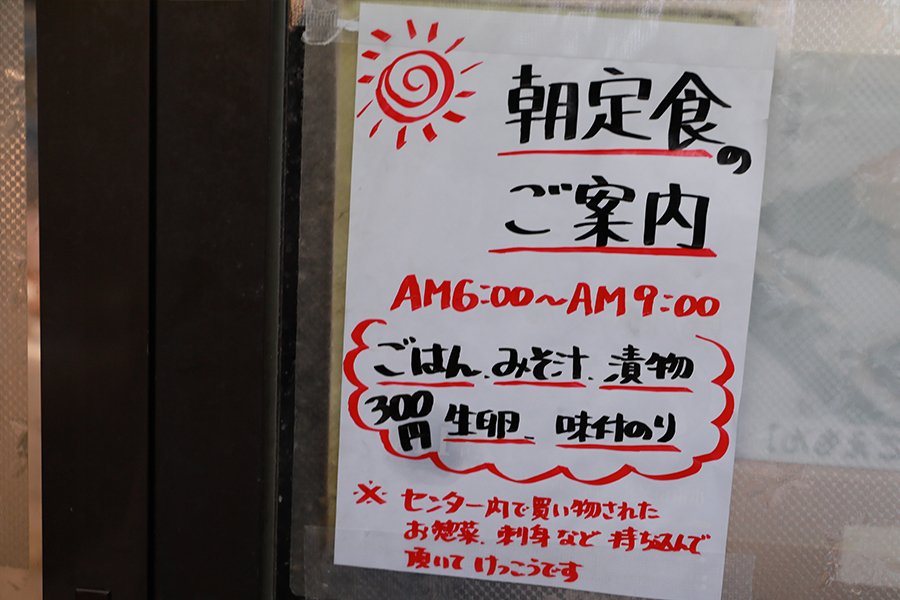 朝定食の
ご案内
AM6:00〜AM9:00
ごはん、みそ汁、漬物
300円 生卵、味付のり
※ センター内で買い物された
お惣菜、刺身など持ち込んで
頂いてけっこうです